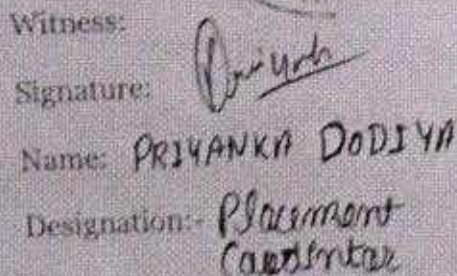 Witness:
Signature: Priyanka
Name: PRIYANKA DODIYA
Designation:- Placement
Coordintar